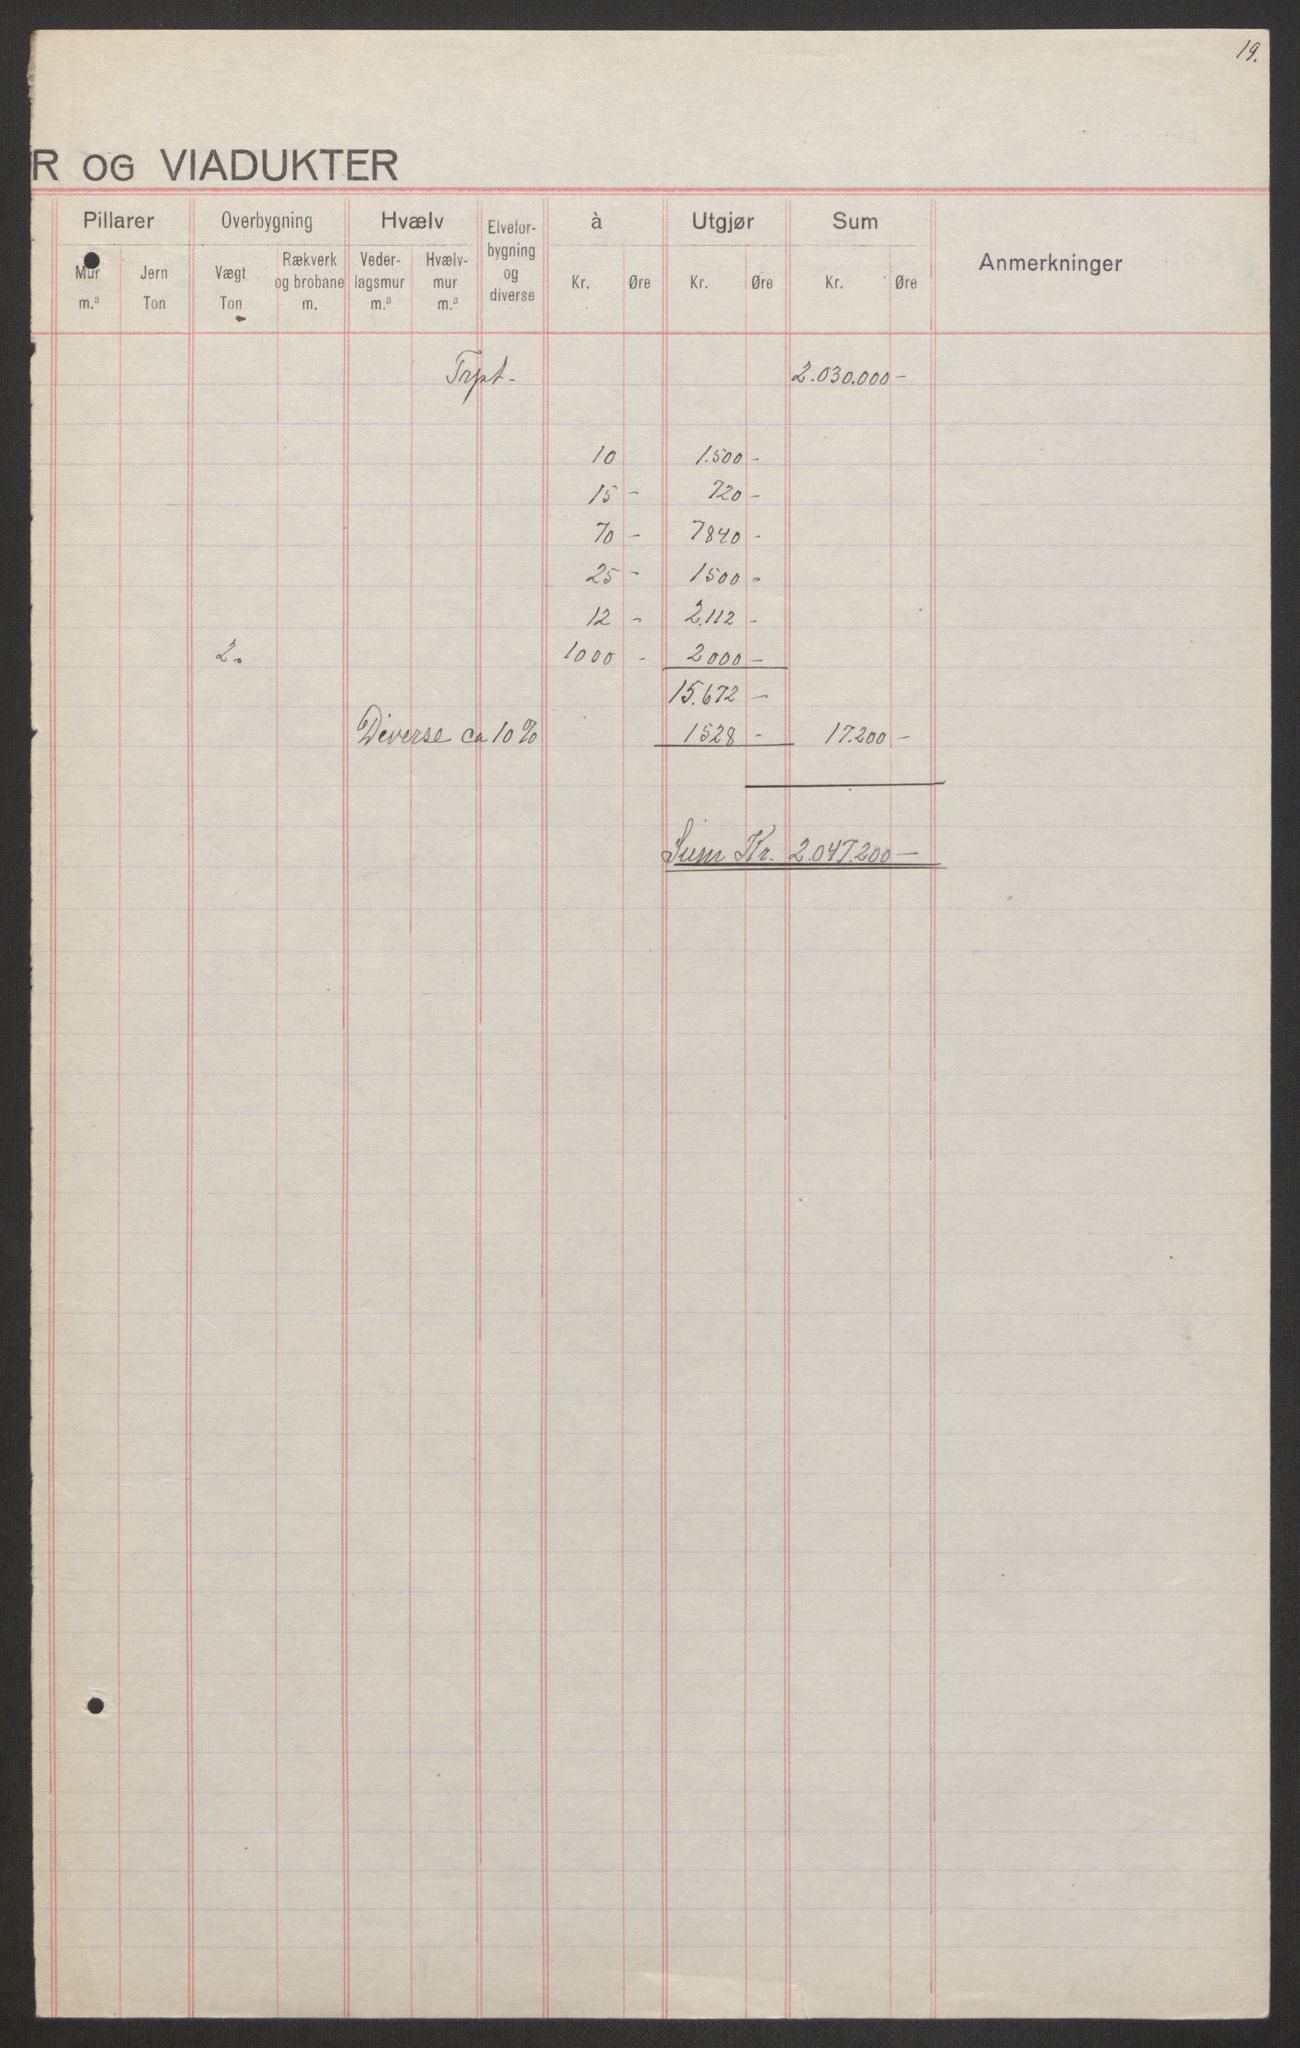 19.
R OG VIADUKTER
Pillarer Overbygning Hvælv Elvefor-bygning og diverse à Utgjør Sum Anmerkninger
Mur m.³ Jern Ton Vægt Ton Rækverk og brobane m. Veder-lagsmur m.³ Hvælv-mur m.³ Kr. Øre Kr. Øre Kr. Øre
Trpt. 2.030.000 -
10 1.500 -
15 - 720 -
70 - 7840 -
25 - 1500 -
12 - 2.112 -
2. 1000 - 2000 -
15.672 -
Diverse ca 10% 1528 - 17.200 -
Sum Kr. 2.047.200 -